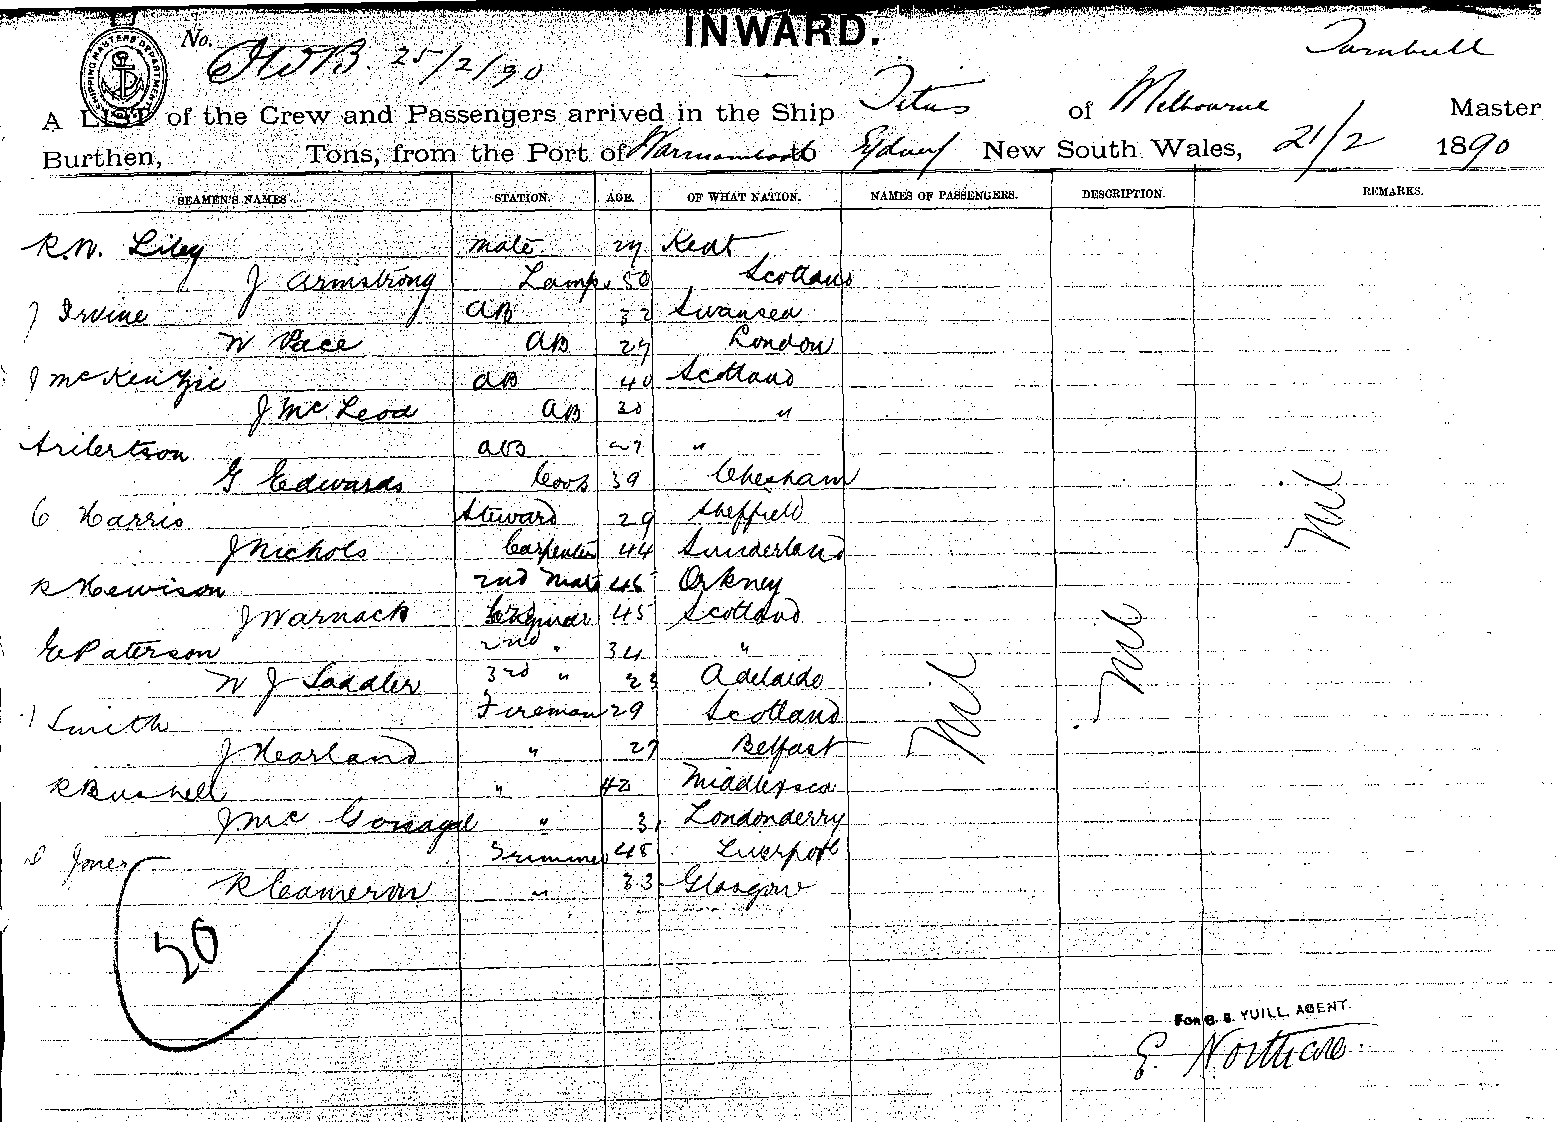 INWARD.
No.
25/2/90
Turnbull
SHIPPING MASTERS DEPARTMENT
A LIST of the Crew and Passengers arrived in the Ship Titus of Melbourne Master
Burthen, Tons, from the Port of Warrnambool to Sydney New South Wales, 21/2 1890
SEAMEN'S NAMES STATION. AGE. OF WHAT NATION. NAMES OF PASSENGERS. DESCRIPTION. REMARKS.
R.W. Liley mate 27 Kent
J Armstrong Lamps 50 Scotland
J Irvine AB 32 Swansea
W Pace AB 27 London
J McKenzie AB 40 Scotland
J McLeod AB 30 "
AB 27 "
G Edwards Cook 39 Chesham
C Harris Steward 29 Sheffield
J Nichols Carpenter 44 Sunderland
R Hewison 2nd Mate 45 Orkney
J Warnack 45 Scotland
E Paterson 2nd " 34 "
W J Saddler 3rd " 23 Adelaide
J Smith Fireman 29 Scotland
J Hearland " 27 Belfast
R Bushell " 42 Middlesex
J Mc " 31 Londonderry
Jones Trimmer 45 Liverpool
R Cameron " 33 Glasgow
Nil
Nil
Nil
20
FOR G. S. YUILL, AGENT
E. Northcote.